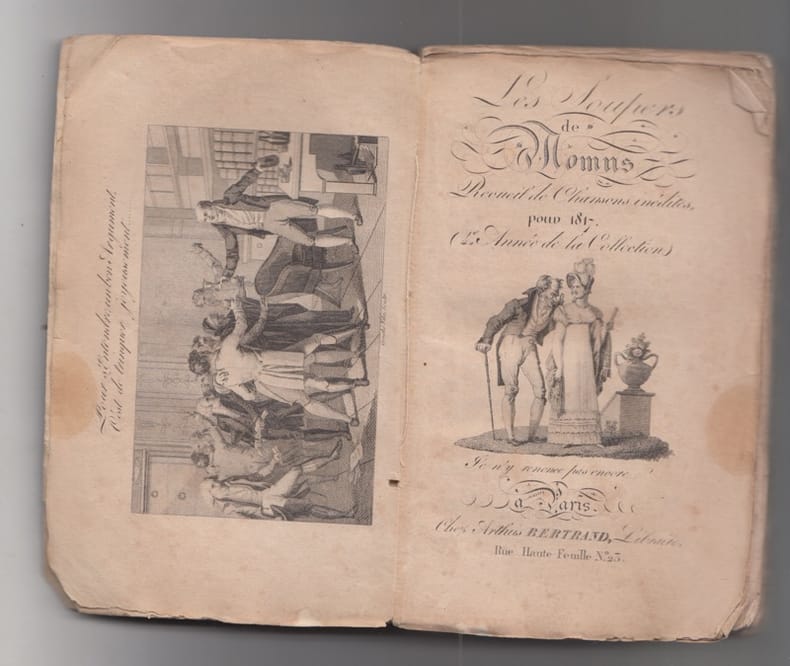 Pour s'Entendre, un bon Argument,
C'est de trinquer joyeusement.
Les Soupers
de
Momus
Recueil de Chansons inédites,
pour 1817.
(4e. Année de la Collection)
Je n'y renonce pas encore.
à Paris.
Chez Arthus BERTRAND, Libraire,
Rue Haute Feuille No. 23.